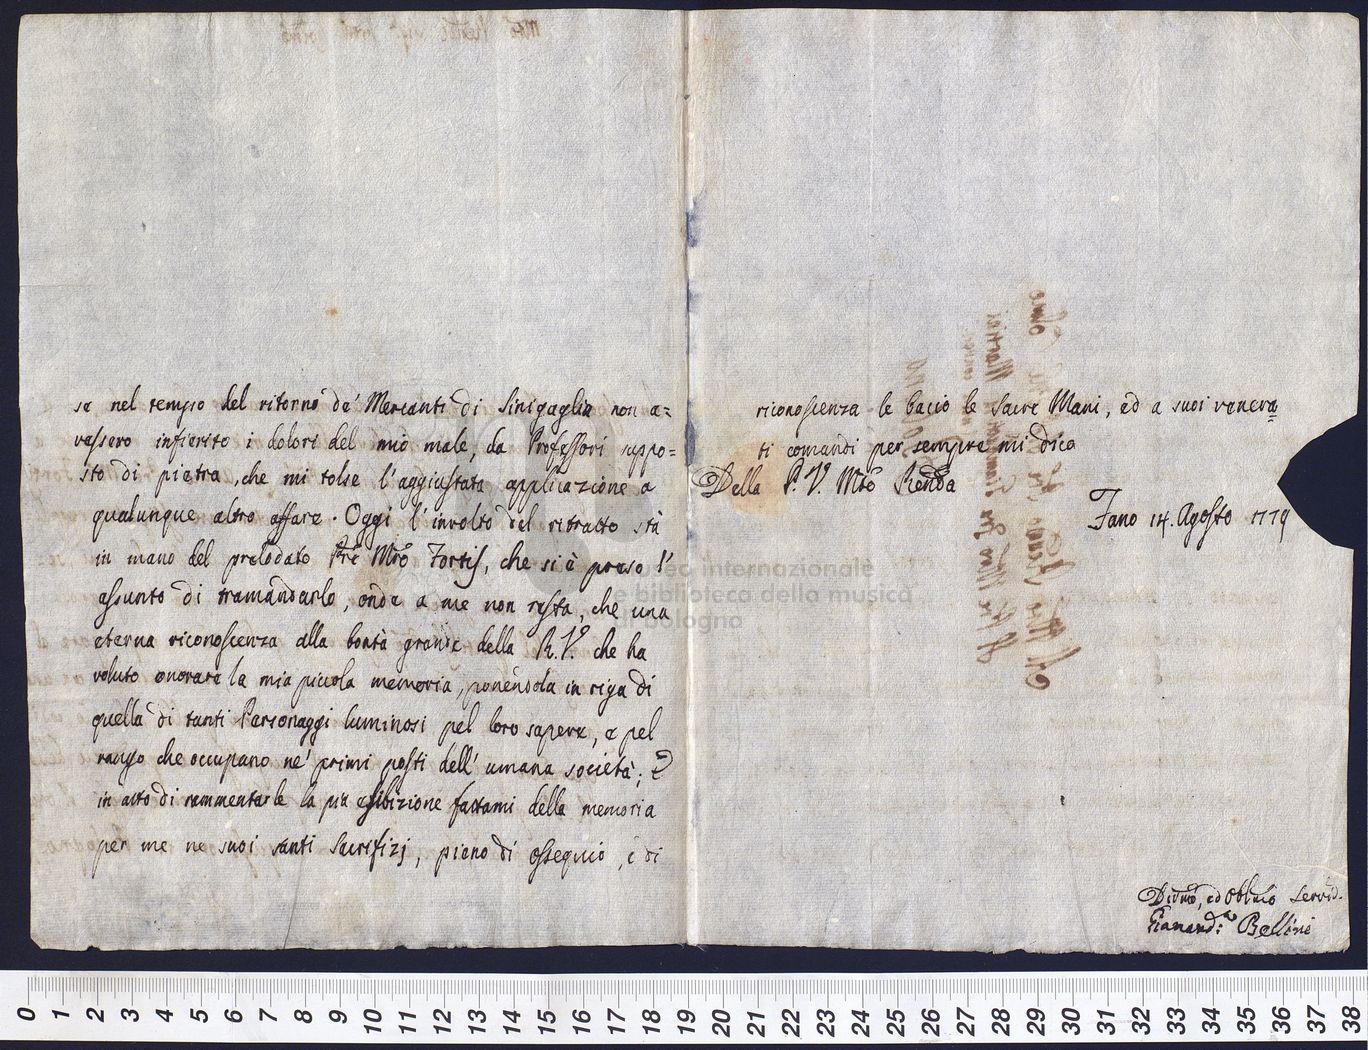 se nel tempo del ritorno de' Mercanti di Sinigaglia non a=
vessero infierito i dolori del mio male, da Professori suppo=
sto di pietra, che mi tolse l'aggiustata applicazione a
qualunque altro affare. Oggi l'involto del ritratto stà
in mano del prelodato Pre Mro Fortis, che si è preso l'
assunto di tramandarlo, onde a me non resta, che una
eterna riconoscenza alla bontà grande della R. V. che ha
voluto onorare la mia piccola memoria, ponendola in riga di
quella di tanti Personaggi luminosi pel loro sapere, e pel
rango che occupano ne' primi posti dell' umana società; E
in atto di rammentarle la pia esibizione fattami della memoria
per me ne suoi santi Sacrifizj, pieno di ossequio, e di
riconoscenza le bacio le Sacre Mani, ed a suoi venera
ti comandi per sempre mi dico
Della P. V. Mto Renda
Fano 14. Agosto 1779
Divmo, ed Obblmo Servid.
Gianand.a Bellini
museo internazionale
e biblioteca della musica
di bologna
0 1 2 3 4 5 6 7 8 9 10 11 12 13 14 15 16 17 18 19 20 21 22 23 24 25 26 27 28 29 30 31 32 33 34 35 36 37 38